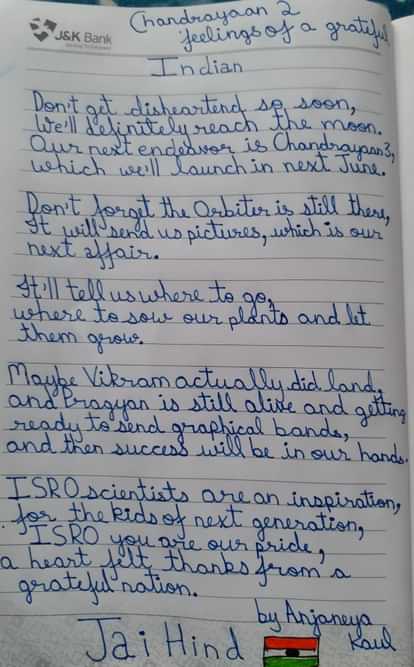 J&K Bank
Serving To Empower
Chandrayaan 2
feelings of a grateful
Indian
Don't get disheartend so soon,
We'll definitely reach the moon.
Our next endeavor is Chandrayaan3,
which we'll launch in next June.
Don't forget the Orbiter is still there,
It will send us pictures, which is our
next affair.
It'll tell us where to go,
where to sow our plants and let
them grow.
Maybe Vikram actually did land,
and Pragyan is still alive and getting
ready to send graphical bands,
and then success will be in our hands.
ISRO scientists are an inspiration,
for the kids of next generation,
ISRO you are our pride,
a heart felt thanks from a
grateful nation.
by Anjaneya
Kaul
Jai Hind